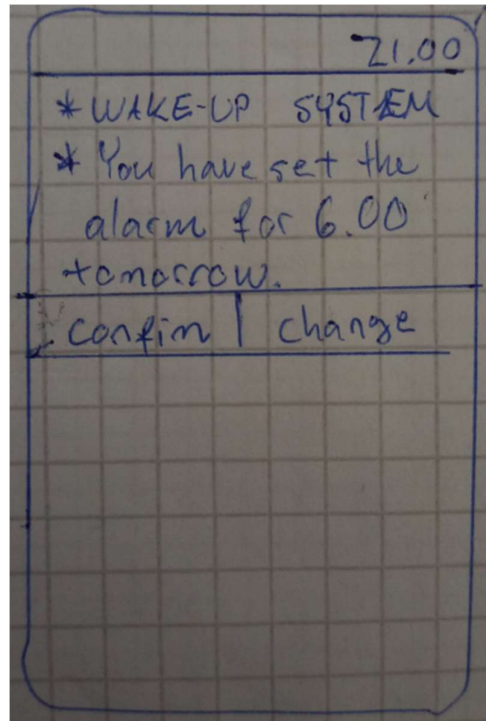 21.00
* WAKE-UP SYSTEM
* You have set the
alarm for 6.00
tomorrow.
Confim | change